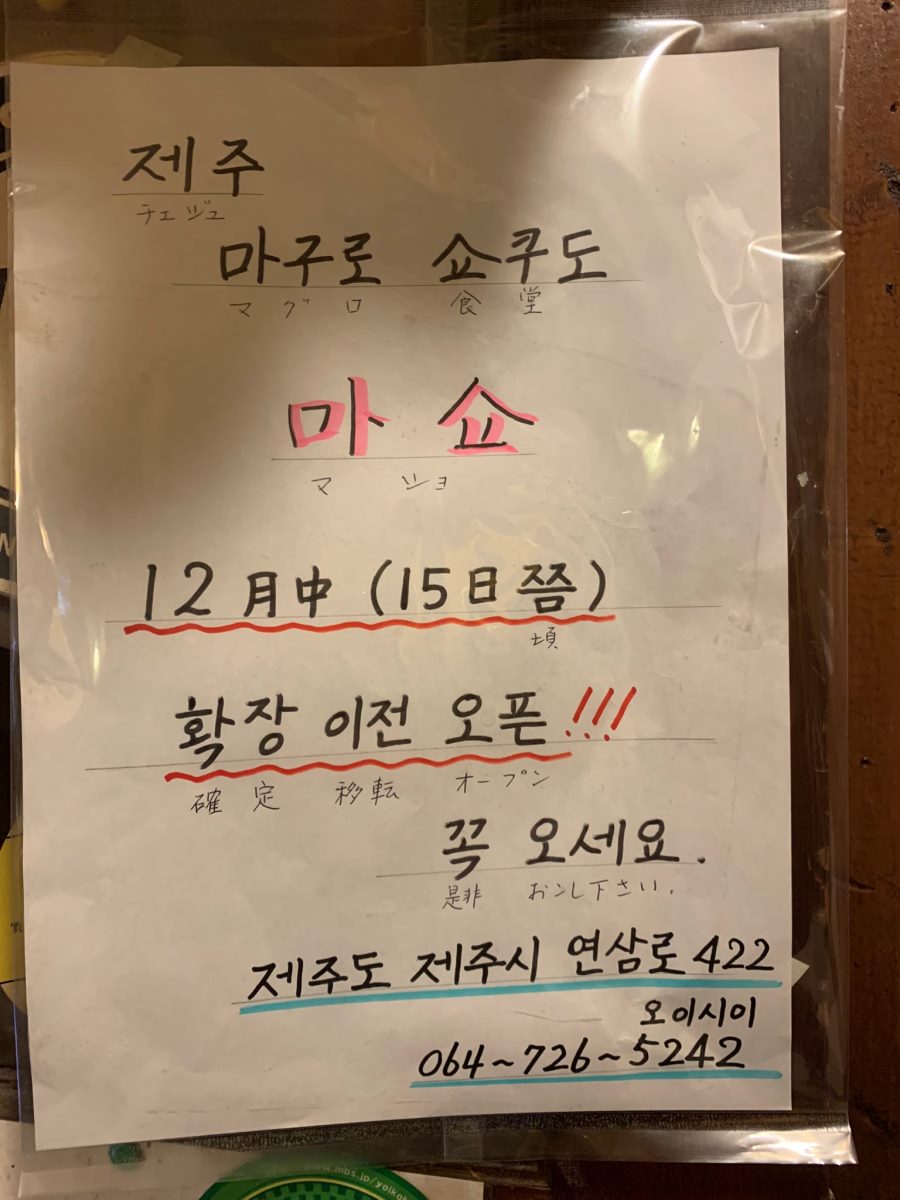 제주
チェジュ
마구로 쇼쿠도
マグロ 食堂
마 쇼
マ ショ
12月中 (15日쯤)
頃
확장 이전 오픈!!!
確定 移転 オープン
꼭 오세요.
是非 おこし下さい.
제주도 제주시 연삼로 422
오이시이
064~726~5242
.mbs.jp/yoiko